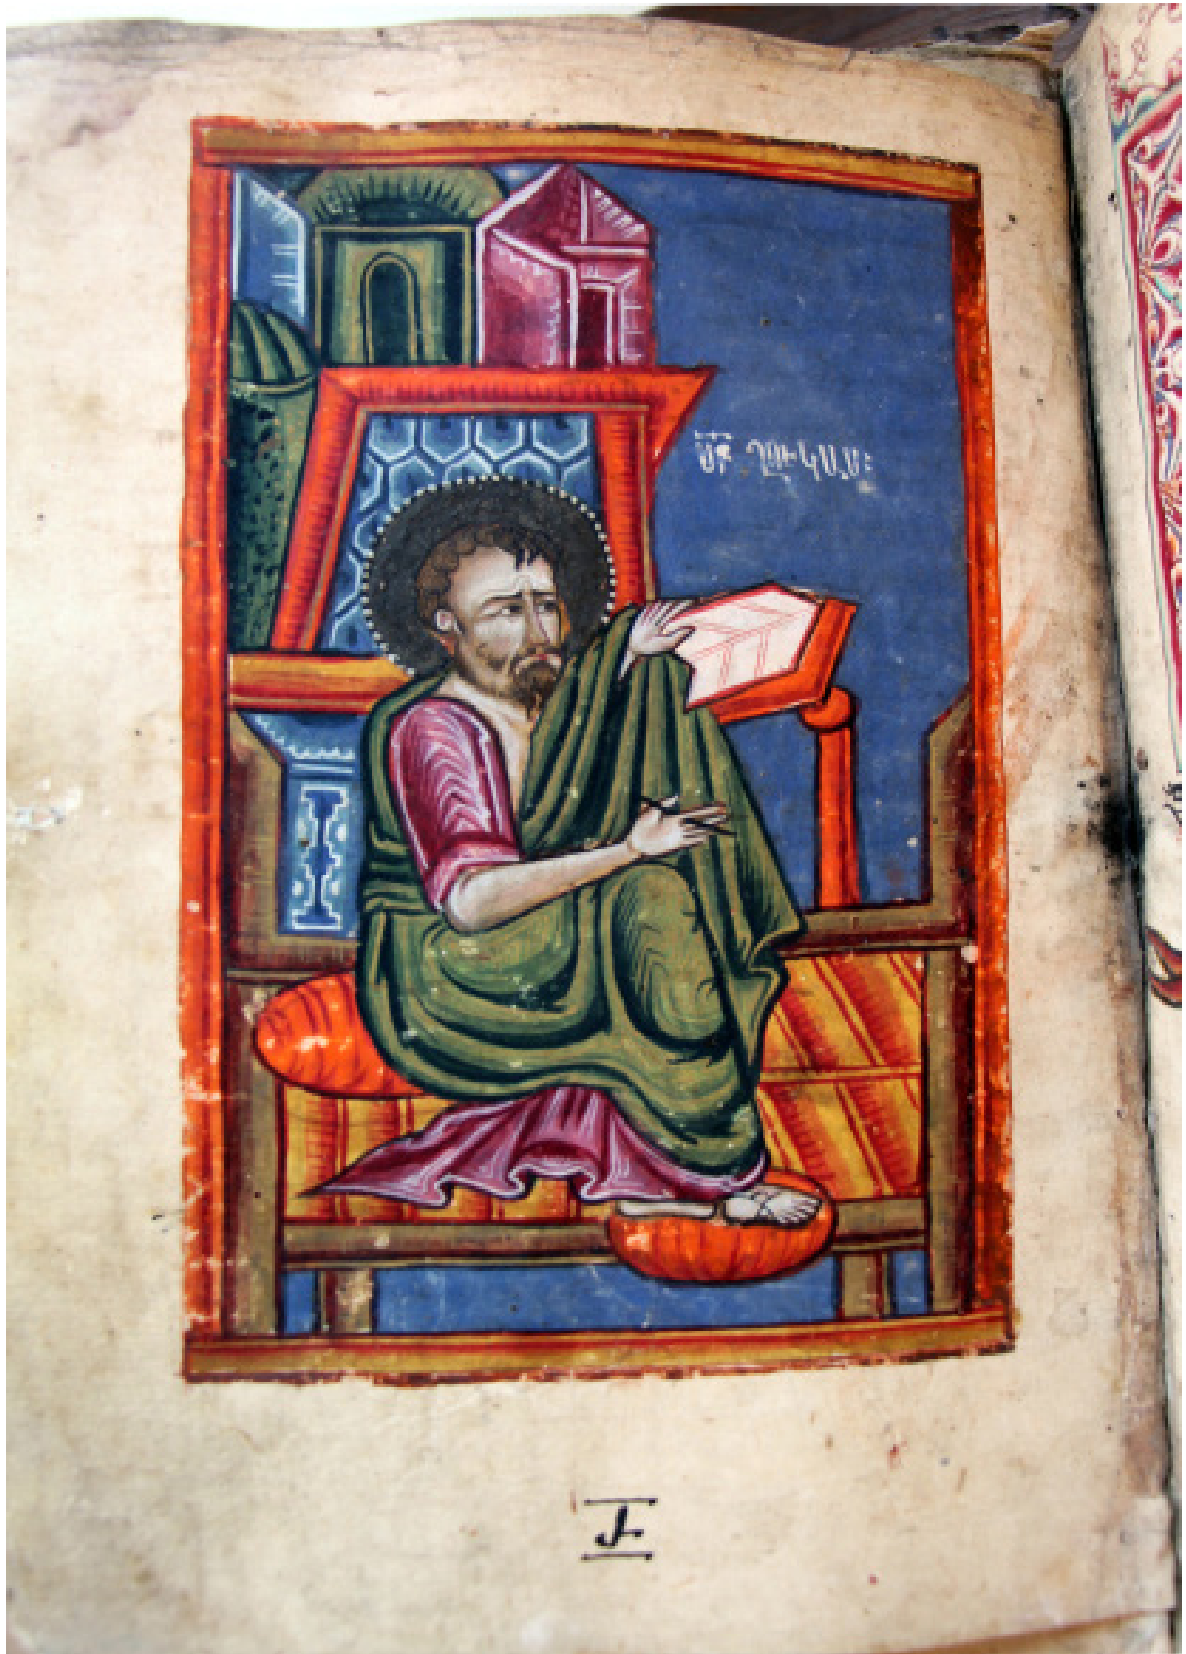 ՍԲ ՂՈՒԿԱՍ։
Ժ